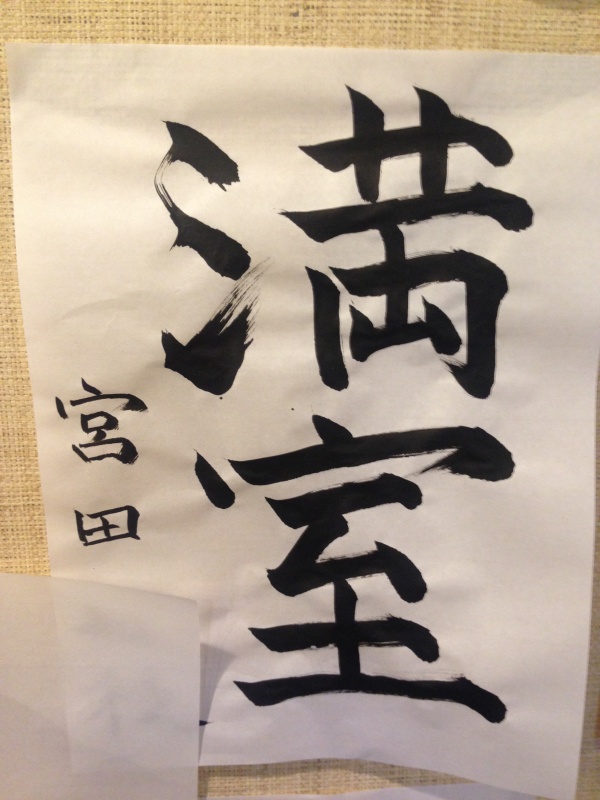 満室
宮田